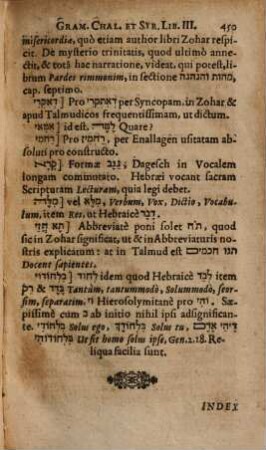 GRAM. CHAL. ET SYR. LIB. III. 450
misericordiæ, quò etiam author libri Zohar respi-
cit. De mysterio trinitatis, quod ultimò anne-
ctit, & totâ hac narratione, videat, qui potest, li-
brum Pardes rimmonim, in sectione מהות והנהגה,
cap. septimo.
דאקרי] Pro דאתקרי per Syncopam. in Zohar &
apud Talmudicos frequentissimum, ut dictum.
אמאי] id est. למה Quare?
רחמי] pro רחמין, per Enallagen usitatam ab-
soluti pro constructo.
קרא] Formæ Dagesch in Vocalem
longam commutato. Hebræi vocant sacram
Scripturam Lecturam, quia legi debet.
מלה] vel מלא, Verbum, Vox, Dictio, Vocabu-
lum, item Res, ut Hebraicè דבר
תא חזי] Abbreviatè poni solet ת"ח, quod
sic in Zohar significat, ut & in Abbreviaturis no-
stris explicatum: at in Talmud est תנו חכמים
Docent sapientes.
בלחודוי] לחוד idem quod Hebraicè לבד item
בד & רק Tantùm, tantummodò, Solummodò, seor-
sim, separatim. וי Hierosolymitanè pro והי. Sæ-
pissimè cum ב ab initio nihil ipsi adsignifican-
te. בלחודי Solus ego, בלחודך Solus tu,
בלחודוהי Ut sit homo solus ipse, Gen. 2. 18. Re-
liqua facilia sunt.
INDEX